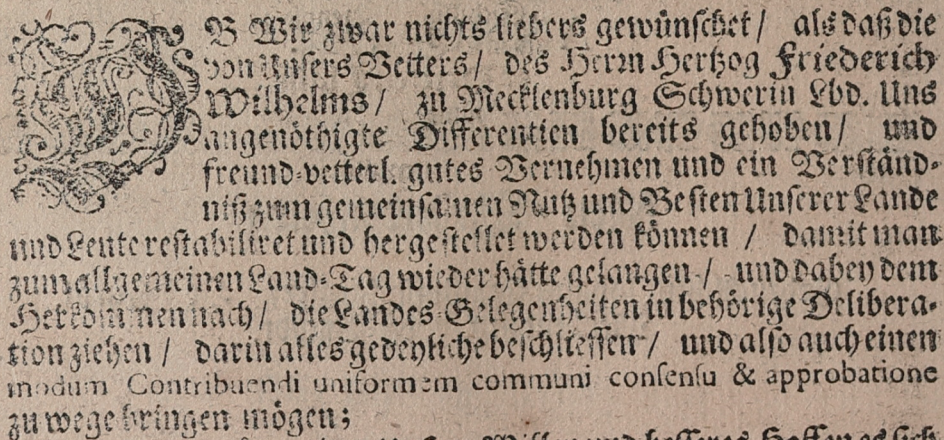 OB Wir zwar nichts liebers gewünschet / als daß die
von Unsers Vetters / des Herrn Hertzog Friederich
Wilhelms / zu Mecklenburg Schwerin Lbd. Uns
angenöthigte Differentien bereits gehoben / und
freund-vetterl. gutes Vernehmen und ein Verständ-
niß zum gemeinsamen Nutz und Besten Unserer Lande
und Leute restabiliret und hergestellet werden können / damit man
zum allgemeinen Land-Tag wieder hätte gelangen / und dabey dem
Herkommen nach / die Landes-Gelegenheiten in behörige Delibera-
tion ziehen / darin alles gedeyliche beschliessen / und also auch einen
modum Contribuendi uniformem communi consensu & approbatione
zu wege bringen mögen;